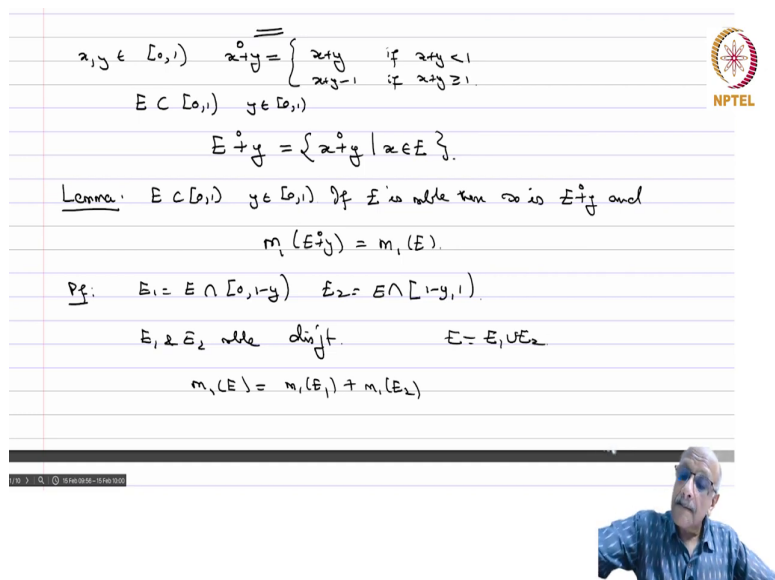 x, y ∈ [0,1) x +° y = { x+y if x+y < 1
x+y-1 if x+y ≥ 1.
E ⊂ [0,1) y ∈ [0,1)
E +° y = { x +° y | x ∈ E }.
Lemma. E ⊂ [0,1) y ∈ [0,1) If E is mble then so is E +° y and
m₁(E +° y) = m₁(E).
Pf: E₁ = E ∩ [0, 1-y) E₂ = E ∩ [1-y, 1).
E₁ & E₂ mble disjt. E = E₁ ∪ E₂
m₁(E) = m₁(E₁) + m₁(E₂)
NPTEL
1/10 15 Feb 09:56 – 15 Feb 10:00